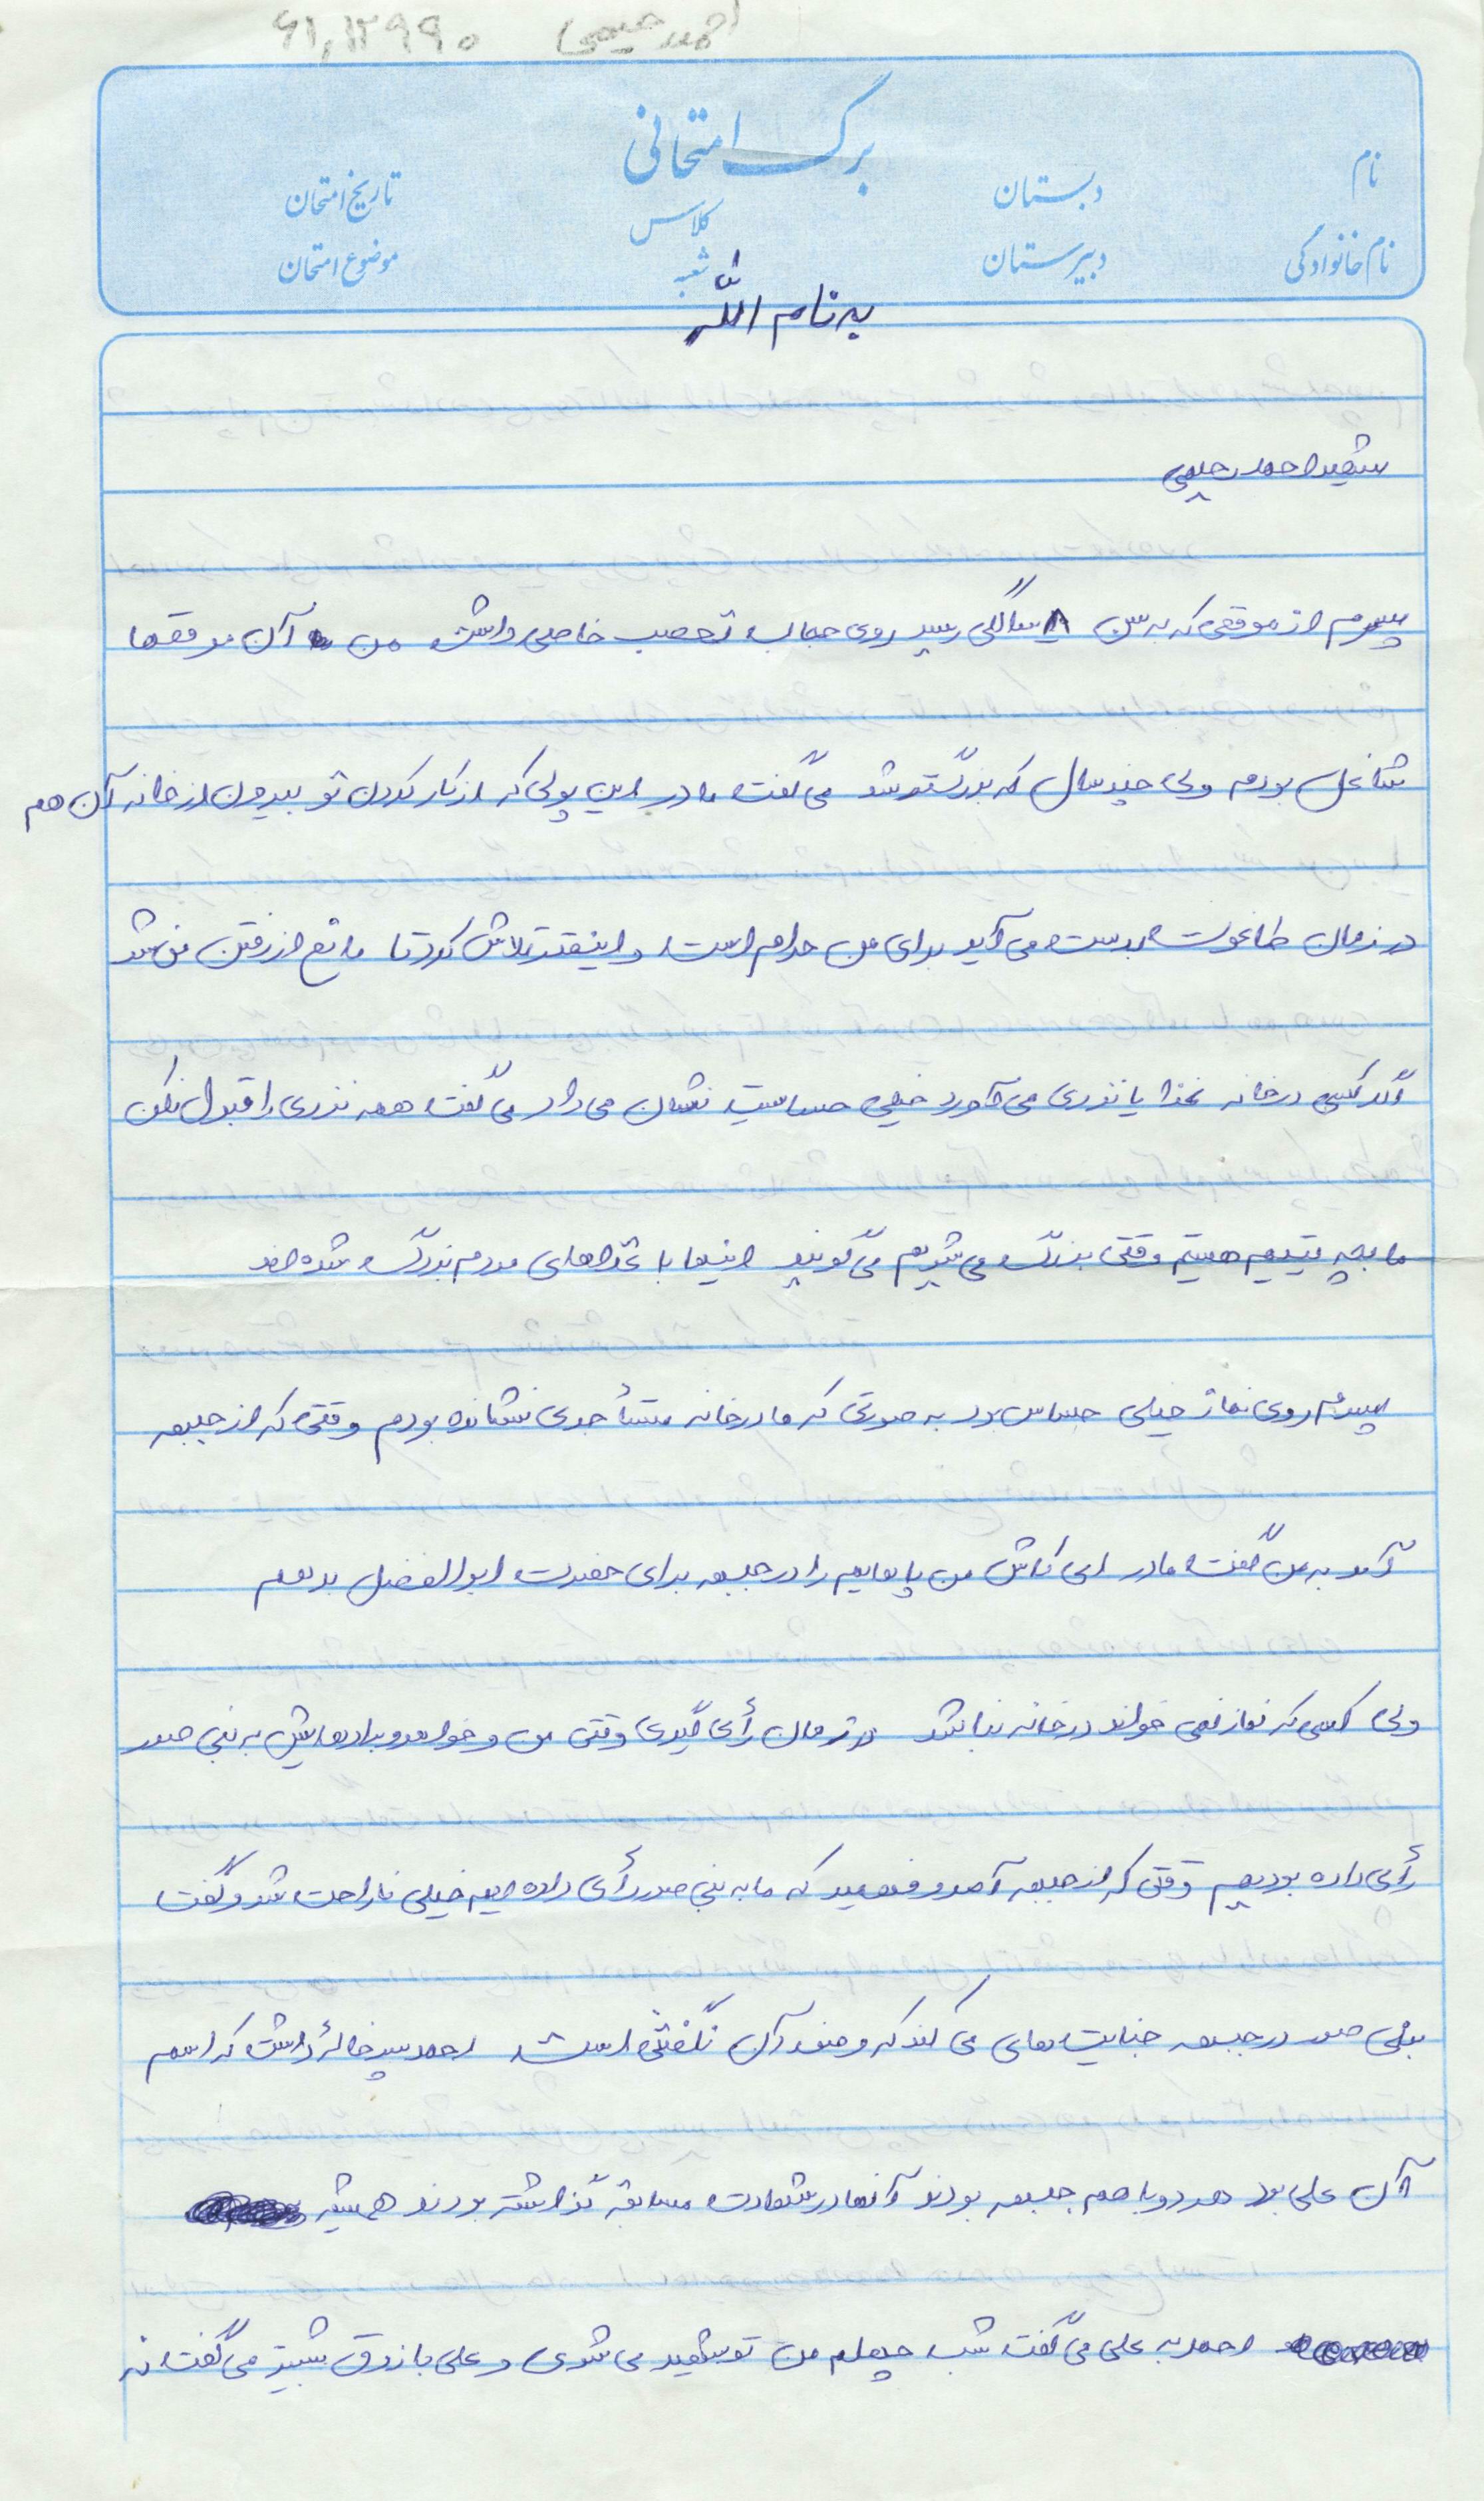 احمد رحیمی ۶۱,۱۲۹۹۰
برگ امتحانی
نام دبستان کلاس تاریخ امتحان
نام خانوادگی دبیرستان شعبه موضوع امتحان
به نام الله
شهید احمد رحیمی
پسرم از موقعی که به سن ۸ سالگی رسید روی حجاب تعصب خاصی داشت من آن موقعها
شاغل بودم ولی چند سال که بزرگتر شد می گفت مادر این پولی که از کار کردن تو بیرون از خانه آن هم
در زمان طاغوت بدست می آید برای من حرام است و اینقدر تلاش کرد تا مانع از رفتن من شد
اگر کسی در خانه غذا یا نذری می آورد خیلی حساسیت نشان می داد می گفت همه نذری را قبول نکن
ما بچه یتیم هستیم وقتی بزرگ می شویم می گویند اینها با غذاهای مردم بزرگ شده اند
پسرم روی نماز خیلی حساس بود به صورتی که ما در خانه مستأجری نشانده بودم وقتی که از جبهه
آمد به من گفت مادر ای کاش من پاهایم را در جبهه برای حضرت ابوالفضل بدهم
ولی کسی که نماز نمی خواند در خانه نباشد در زمان رأی گیری وقتی من و خواهر و برادرهایش به بنی صدر
رأی داده بودیم وقتی که از جبهه آمد و فهمید که ما به بنی صدر رأی داده ایم خیلی ناراحت شد و گفت
بنی صدر در جبهه جنایت های می کند که وصف آن نگفتنی است احمد پسر خاله داشت که اسم
آن علی بود هر دو با هم جبهه بودند آنها در شهادت مسابقه گذاشته بودند همیشه
احمد به علی می گفت شب چهلم من تو شهید می شوی و علی با ذوق بیشتر می گفت نه